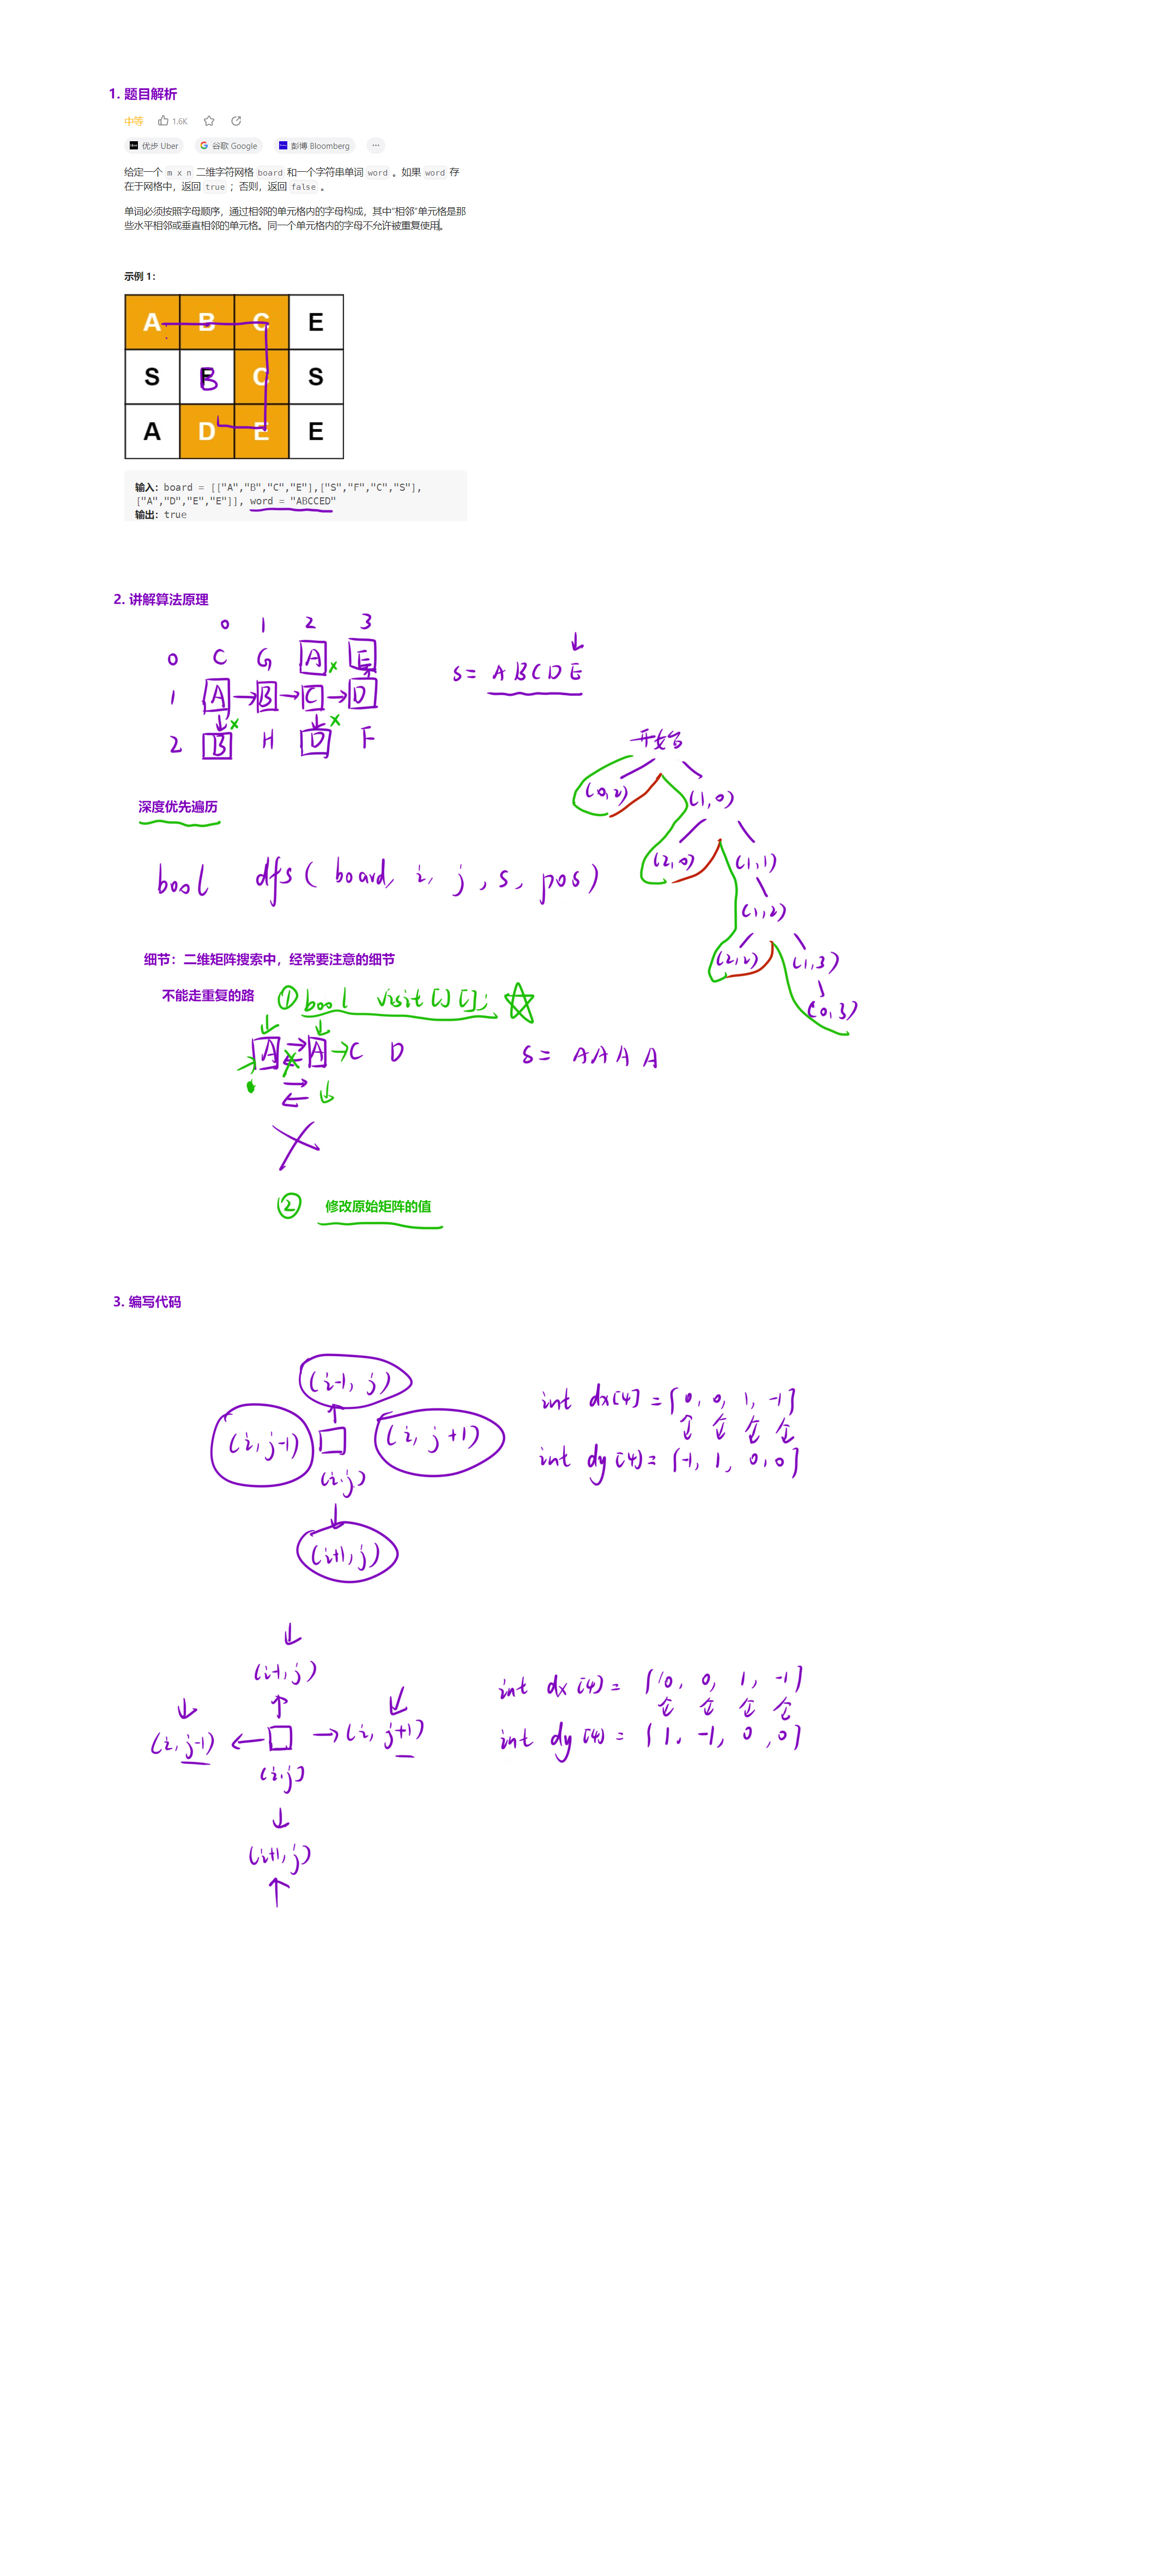 1. 题目解析
中等 1.6K
优步 Uber 谷歌 Google 彭博 Bloomberg ...
给定一个 m x n 二维字符网格 board 和一个字符串单词 word 。如果 word 存
在于网格中，返回 true ；否则，返回 false 。
单词必须按照字母顺序，通过相邻的单元格内的字母构成，其中“相邻”单元格是那
些水平相邻或垂直相邻的单元格。同一个单元格内的字母不允许被重复使用。
示例 1：
A B C E
S F B C S
A D E E
输入：board = [["A","B","C","E"],["S","F","C","S"],
["A","D","E","E"]], word = "ABCCED"
输出：true
2. 讲解算法原理
0 1 2 3
0 C G A E
1 A B C D
2 B H D F
s = A B C D E
开始
(0,2) (1,0)
(2,0) (1,1)
(1,2)
(2,2) (1,3)
(0,3)
深度优先遍历
bool dfs( board, i, j, s, pos)
细节：二维矩阵搜索中，经常要注意的细节
不能走重复的路 ① bool visit[][];
A A C D
s = A A A A
② 修改原始矩阵的值
3. 编写代码
(i-1, j)
(i, j-1) (i, j+1)
(i,j)
(i+1, j)
int dx[4] = [0, 0, 1, -1]
int dy[4] = [-1, 1, 0, 0]
(i-1, j)
(i, j-1) (i, j+1)
(i,j)
(i+1, j)
int dx[4] = [0, 0, 1, -1]
int dy[4] = [1, -1, 0, 0]